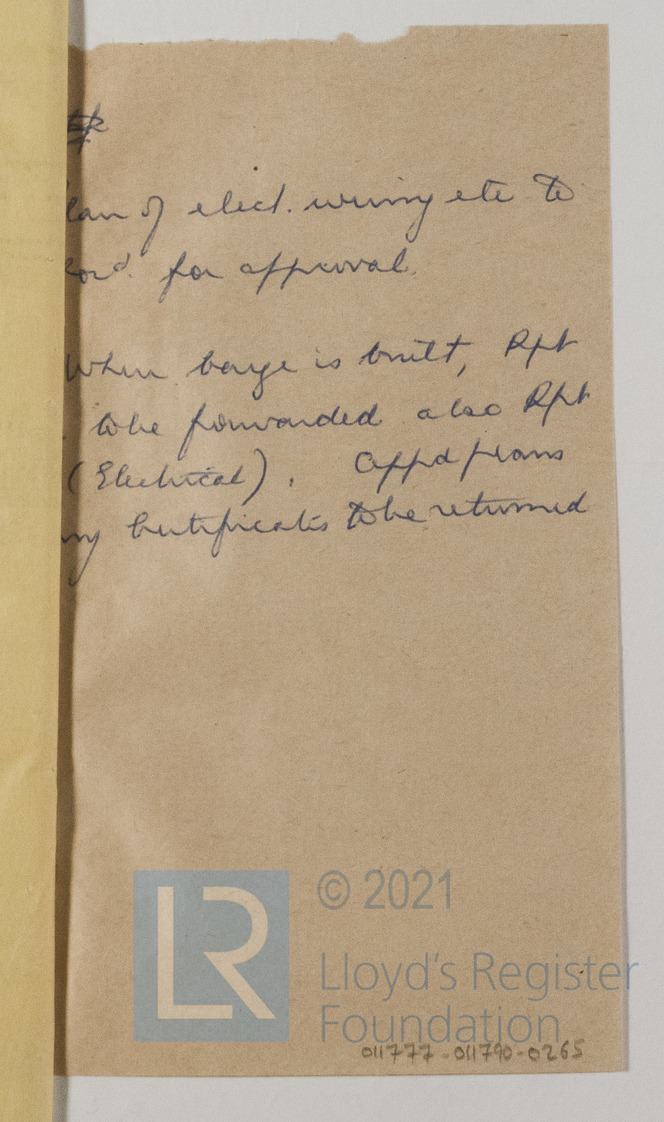 lan of elect. wiring etc to
for approval.
When barge is built, Rpt
to be forwarded also Rpt
(Electrical). Appd plans
Certificates to be returned
LR
© 2021
Lloyd's Register
Foundation
011777-011790-0265